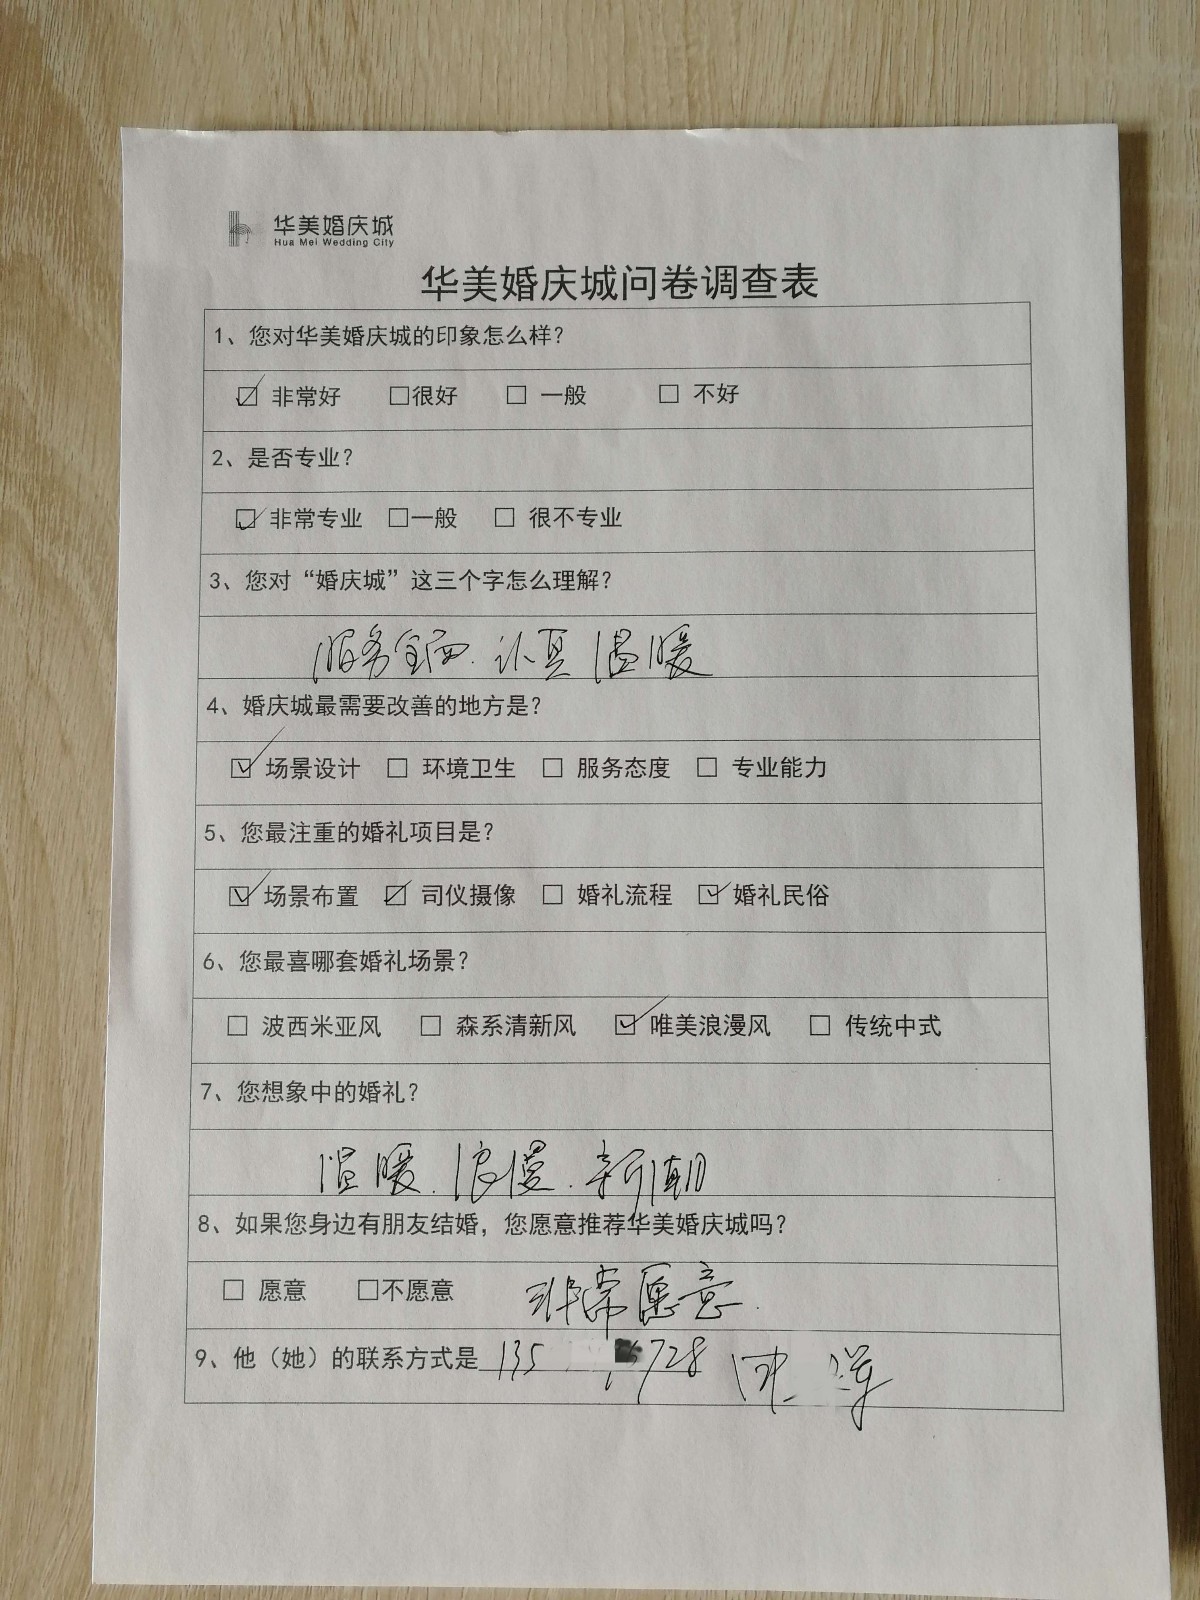 华美婚庆城
Hua Mei Wedding City
华美婚庆城问卷调查表
1、您对华美婚庆城的印象怎么样?
☑ 非常好 □很好 □ 一般 □ 不好
2、是否专业?
☑ 非常专业 □一般 □ 很不专业
3、您对“婚庆城”这三个字怎么理解?
服务全面.认真 温暖
4、婚庆城最需要改善的地方是?
☑ 场景设计 □ 环境卫生 □ 服务态度 □ 专业能力
5、您最注重的婚礼项目是?
☑ 场景布置 ☑ 司仪摄像 □ 婚礼流程 ☑ 婚礼民俗
6、您最喜哪套婚礼场景?
□ 波西米亚风 □ 森系清新风 ☑ 唯美浪漫风 □ 传统中式
7、您想象中的婚礼?
温暖.浪漫.新潮
8、如果您身边有朋友结婚，您愿意推荐华美婚庆城吗?
□ 愿意 □不愿意 非常愿意.
9、他（她）的联系方式是 135 728